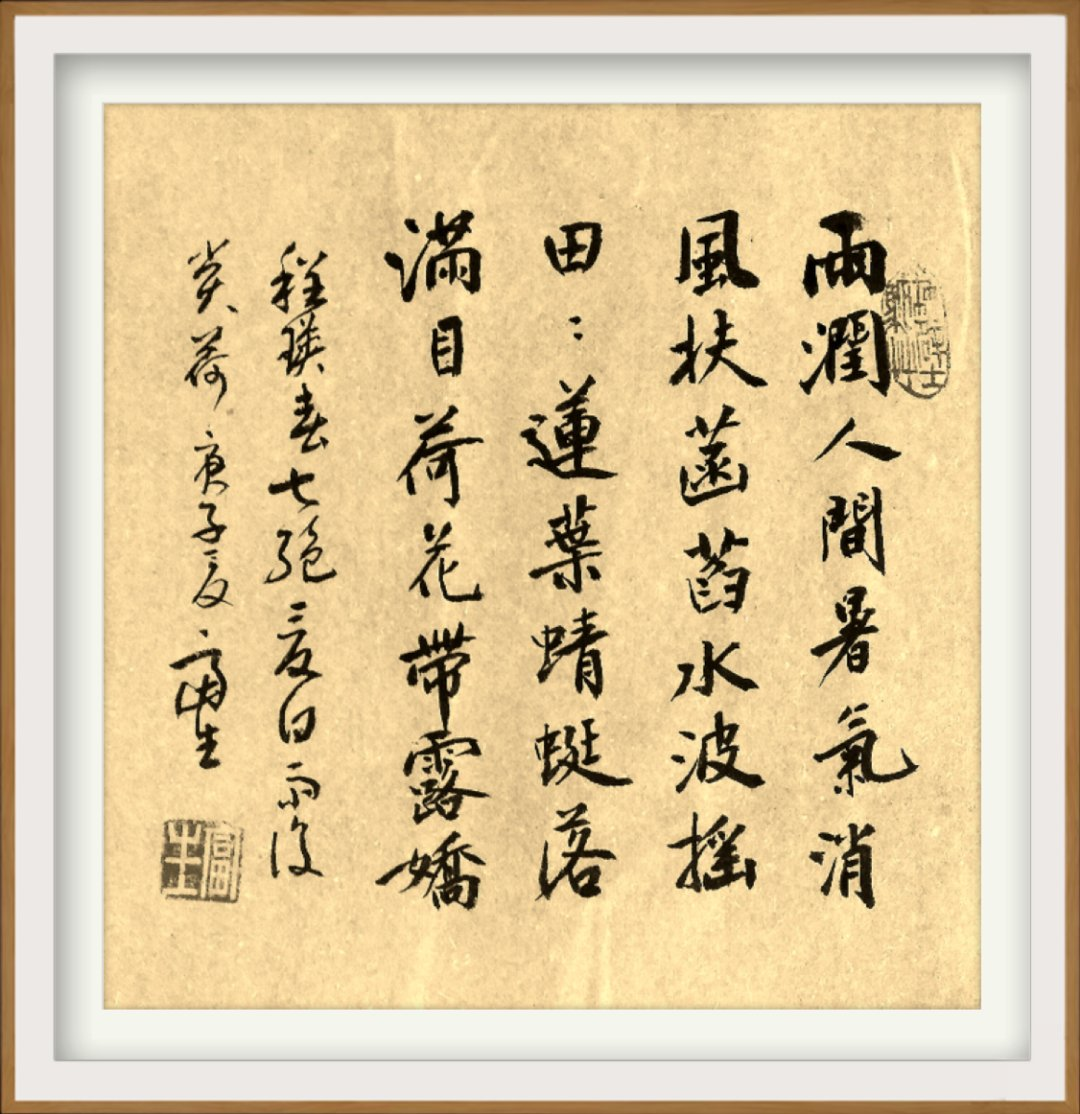 雨潤人間暑氣消
風扶菡萏水波搖
田〻蓮葉蜻蜓落
滿目荷花帶露嬌
程瑛春七絕夏日雨後
赏荷庚子夏富生
富生